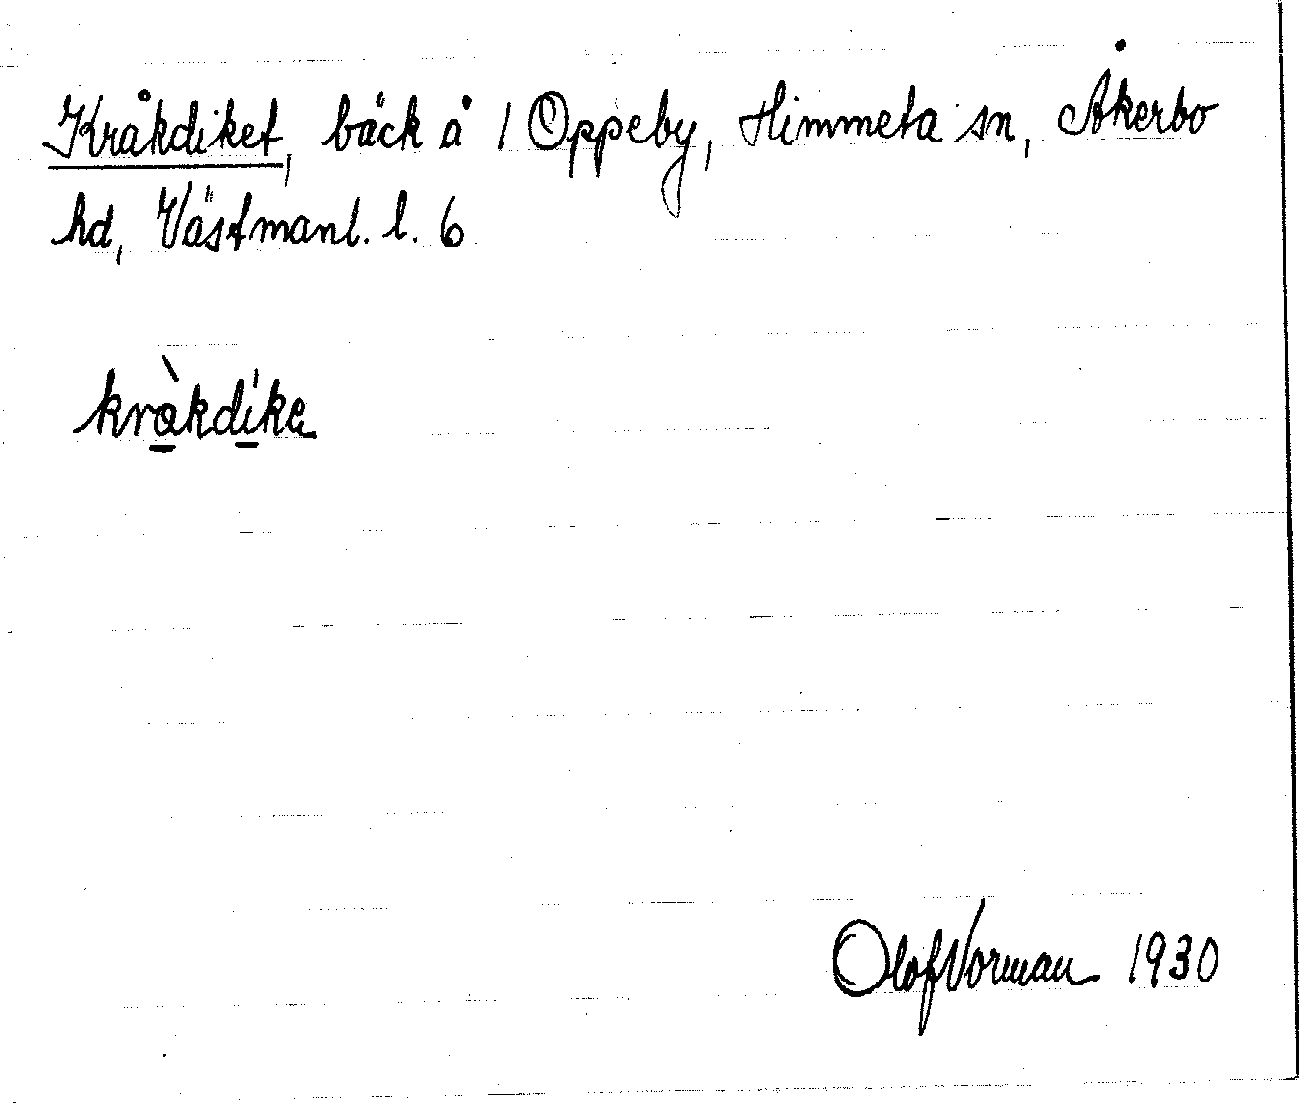 Kråkdiket, bäck å 1 Oppeby, Himmeta sn, Åkerbo
hd, Västmanl. l. 6
kråkdike
Olof Norman 1930